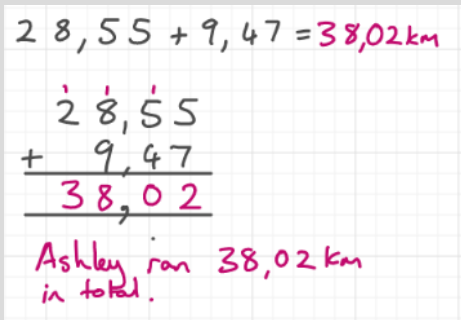 28,55 + 9,47 = 38,02 km
1 1 1
28,55
+ 9,47
38,02
Ashley ran 38,02 km
in total.